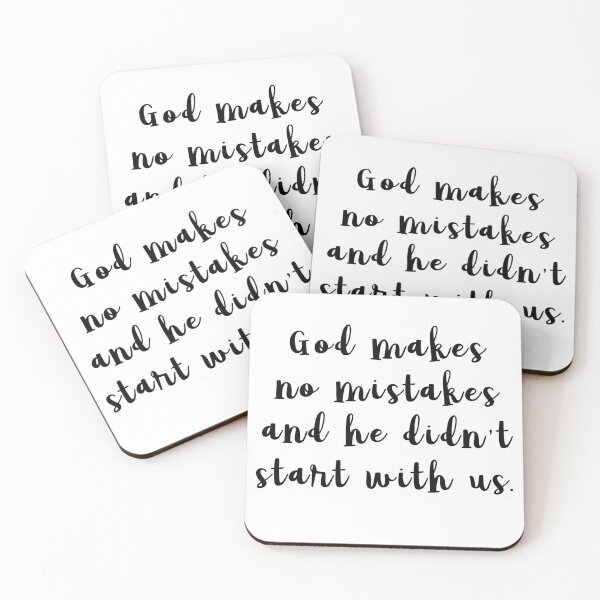 God makes
no mistakes
God makes
no mistakes
and he didn't
start with us.
God makes
no mistakes
and he didn't
start with
God makes
no mistakes
and he didn't
start with us.